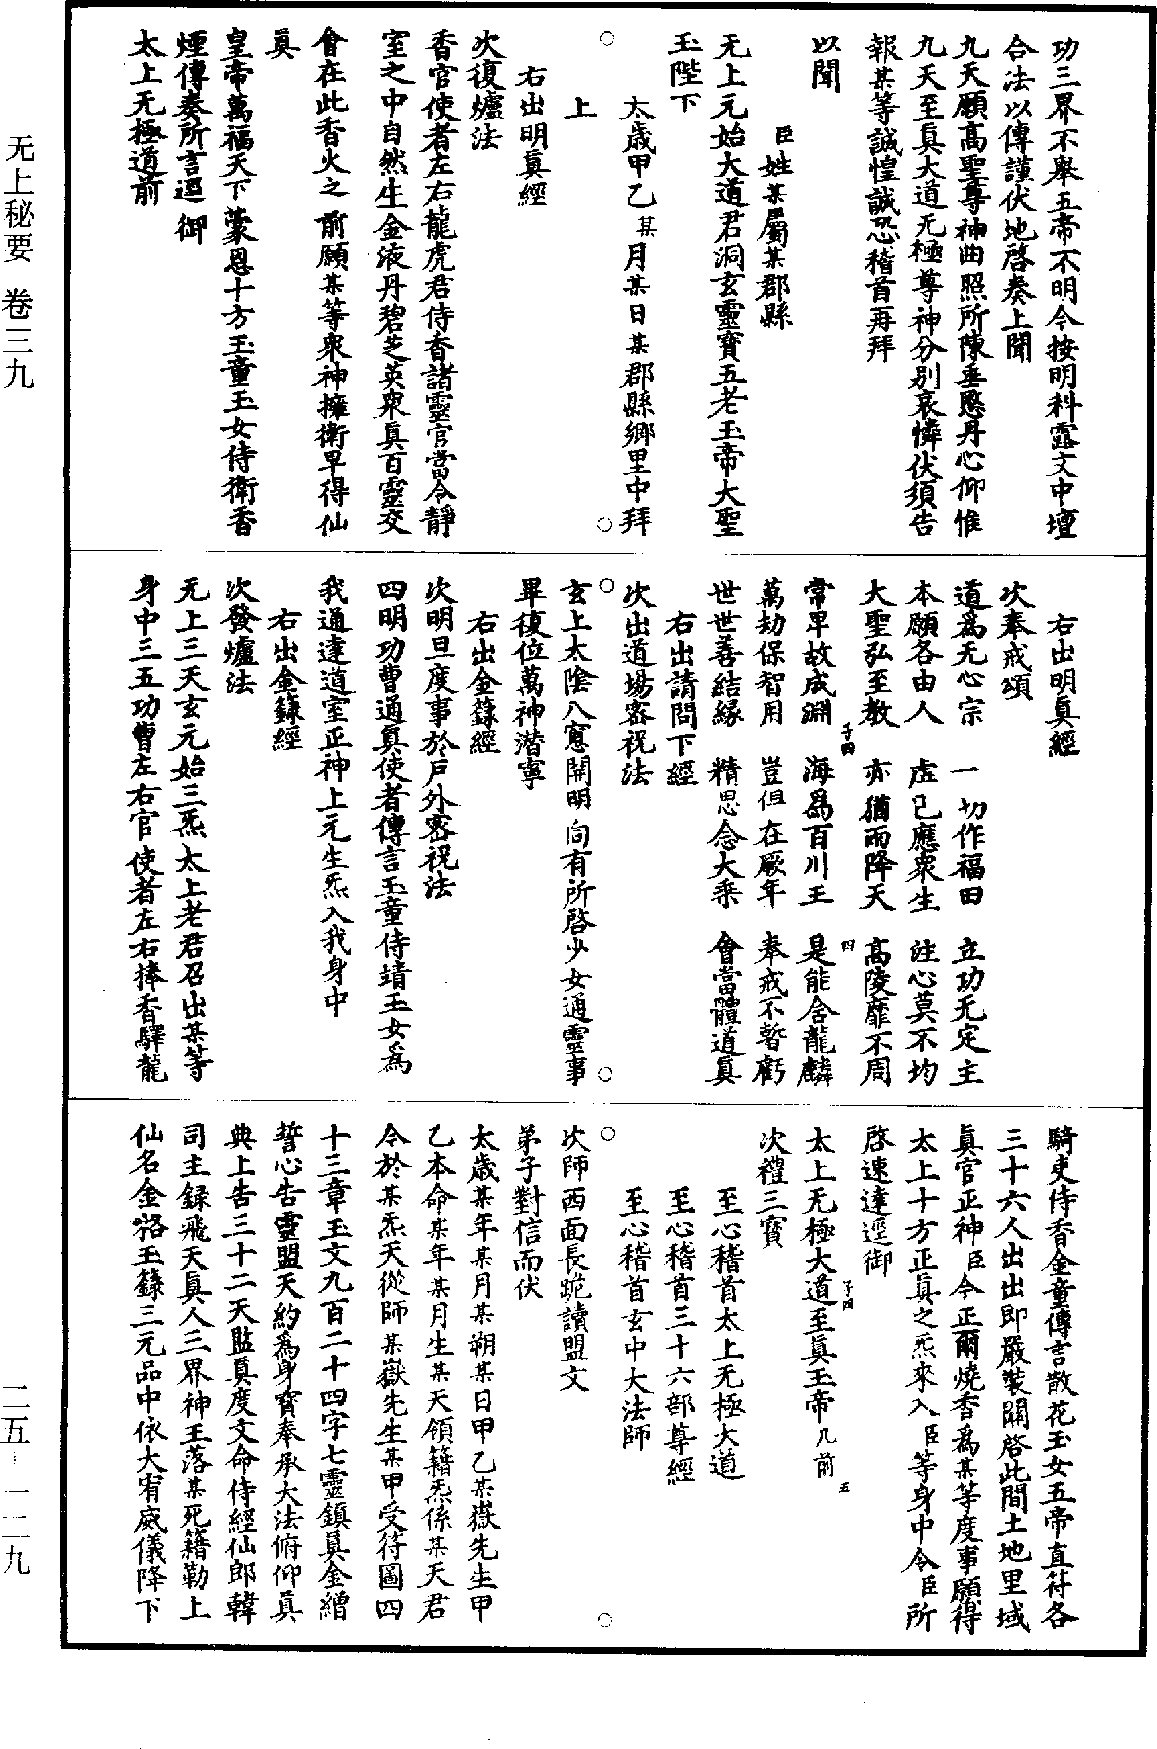 无上秘要 卷三九
二五——一二九
功三界不舉五帝不明今按明科露文中壇
合法以傳謹伏地啓奏上聞
九天願高聖尊神曲照所陳垂愍丹心仰惟
九天至眞大道无極尊神分別哀憐伏須告
報某等誠惶誠恐稽首再拜
以聞
臣姓某屬某郡縣
无上元始大道君洞玄靈寶五老玉帝大聖
玉陛下
太歲甲乙某月某日某郡縣鄉里中拜
上
右出明眞經
次復爐法
香官使者左右龍虎君侍香諸靈官當令靜
室之中自然生金液丹碧芝英衆眞百靈交
會在此香火之前願某等衆神擁衛早得仙
眞
皇帝萬福天下蒙恩十方玉童玉女侍衛香
煙傳奏所言逕御
太上无極道前
右出明眞經
次奉戒頌
道爲无心宗 一切作福田 立功无定主
本願各由人 虛己應衆生 注心莫不均
大聖弘至教 亦猶雨降天 高陵靡不周
子四
四
常卑故成淵 海爲百川王 是能舍龍麟
萬劫保智用 豈但在厥年 奉戒不暫虧
世世善結緣 精思念大乘 會當體道眞
右出請問下經
次出道場密祝法
玄上太陰八窻開明向有所啓少女通靈事
畢復位萬神潜寧
右出金籙經
次明旦度事於戶外密祝法
四明功曹通眞使者傳言玉童侍靖玉女爲
我通達道室正神上元生炁入我身中
右出金籙經
次發爐法
无上三天玄元始三炁太上老君召出某等
身中三五功曹左右官使者左右捧香驛龍
騎吏侍香金童傳言散花玉女五帝直符各
三十六人出出即嚴裝關啓此間土地里域
眞官正神臣今正爾燒香爲某等度事願得
太上十方正眞之炁來入臣等身中令臣所
啓速達逕御
太上无極大道至眞玉帝几前
子四
五
次禮三寶
至心稽首太上无極大道
至心稽首三十六部尊經
至心稽首玄中大法師
次師西面長跪讀盟文
弟子對信而伏
太歲某年某月某朔某日甲乙某嶽先生甲
乙本命某年某月生某天領籍炁係某天君
今於某炁天從師某嶽先生某甲受符圖四
十三章玉文九百二十四字七靈鎮眞金繒
誓心告靈盟天約爲身寶奉承大法俯仰眞
典上告三十二天監眞度文命侍經仙郎韓
司主錄飛天眞人三界神王落某死籍勒上
仙名金格玉籙三元品中依大宥威儀降下